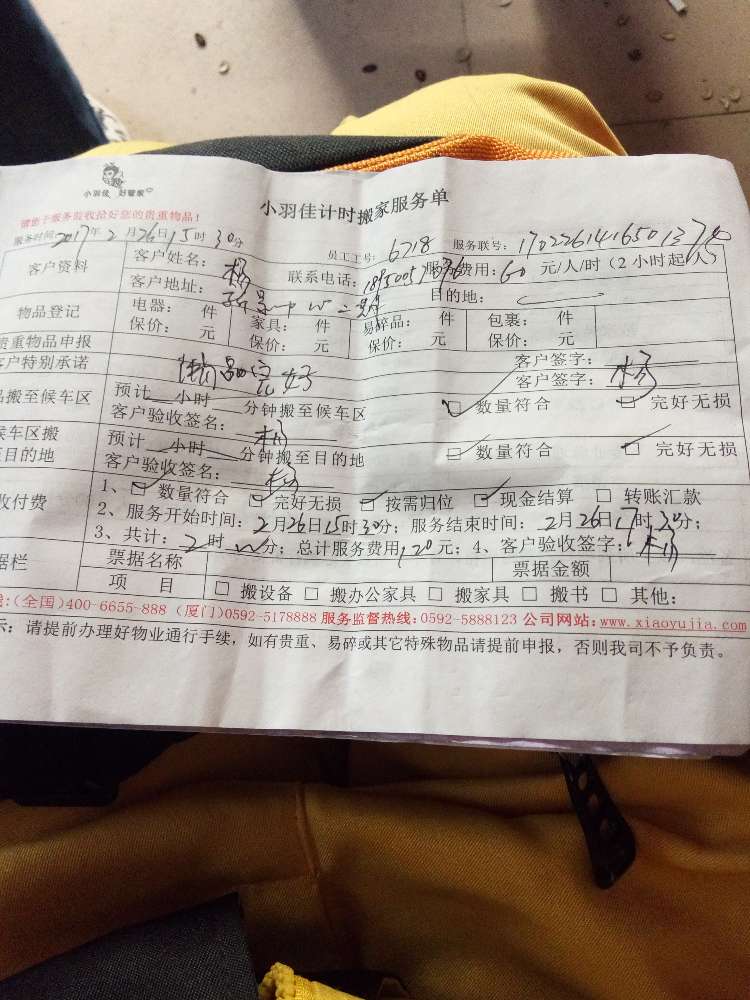 小羽佳 好管家
小羽佳计时搬家服务单
请您于服务验收验好您的贵重物品！
服务时间：2017年2月26日15时30分 员工工号：6718 服务联号：
客户资料 客户姓名：杨 联系电话： 服务费用：60元/人/时（2小时起/人）
客户地址： 目的地：
物品登记 电器： 件 家具： 件 易碎品： 件 包裹： 件
保价： 元 保价： 元 保价： 元 保价： 元
贵重物品申报 客户签字：
客户特别承诺 物品完好 客户签字：杨
品搬至候车区 预计 小时 分钟搬至候车区 ☑数量符合 ☑完好无损
客户验收签名：杨
候车区搬至目的地 预计 小时 分钟搬至目的地 ☑数量符合 ☑完好无损
客户验收签名：杨
收付费 1、☑数量符合 ☑完好无损 ☑按需归位 ☑现金结算 □转账汇款
2、服务开始时间：2月26日15时30分；服务结束时间：2月26日17时30分；
3、共计：2时 分；总计服务费用120元；4、客户验收签字：杨
据栏 票据名称 票据金额
项 目 □搬设备 □搬办公家具 □搬家具 □搬书 □其他：
线：(全国)400-6655-888 (厦门)0592-5178888 服务监督热线：0592-5888123 公司网站：www.xiaoyujia.com
示：请提前办理好物业通行手续，如有贵重、易碎或其它特殊物品请提前申报，否则我司不予负责。